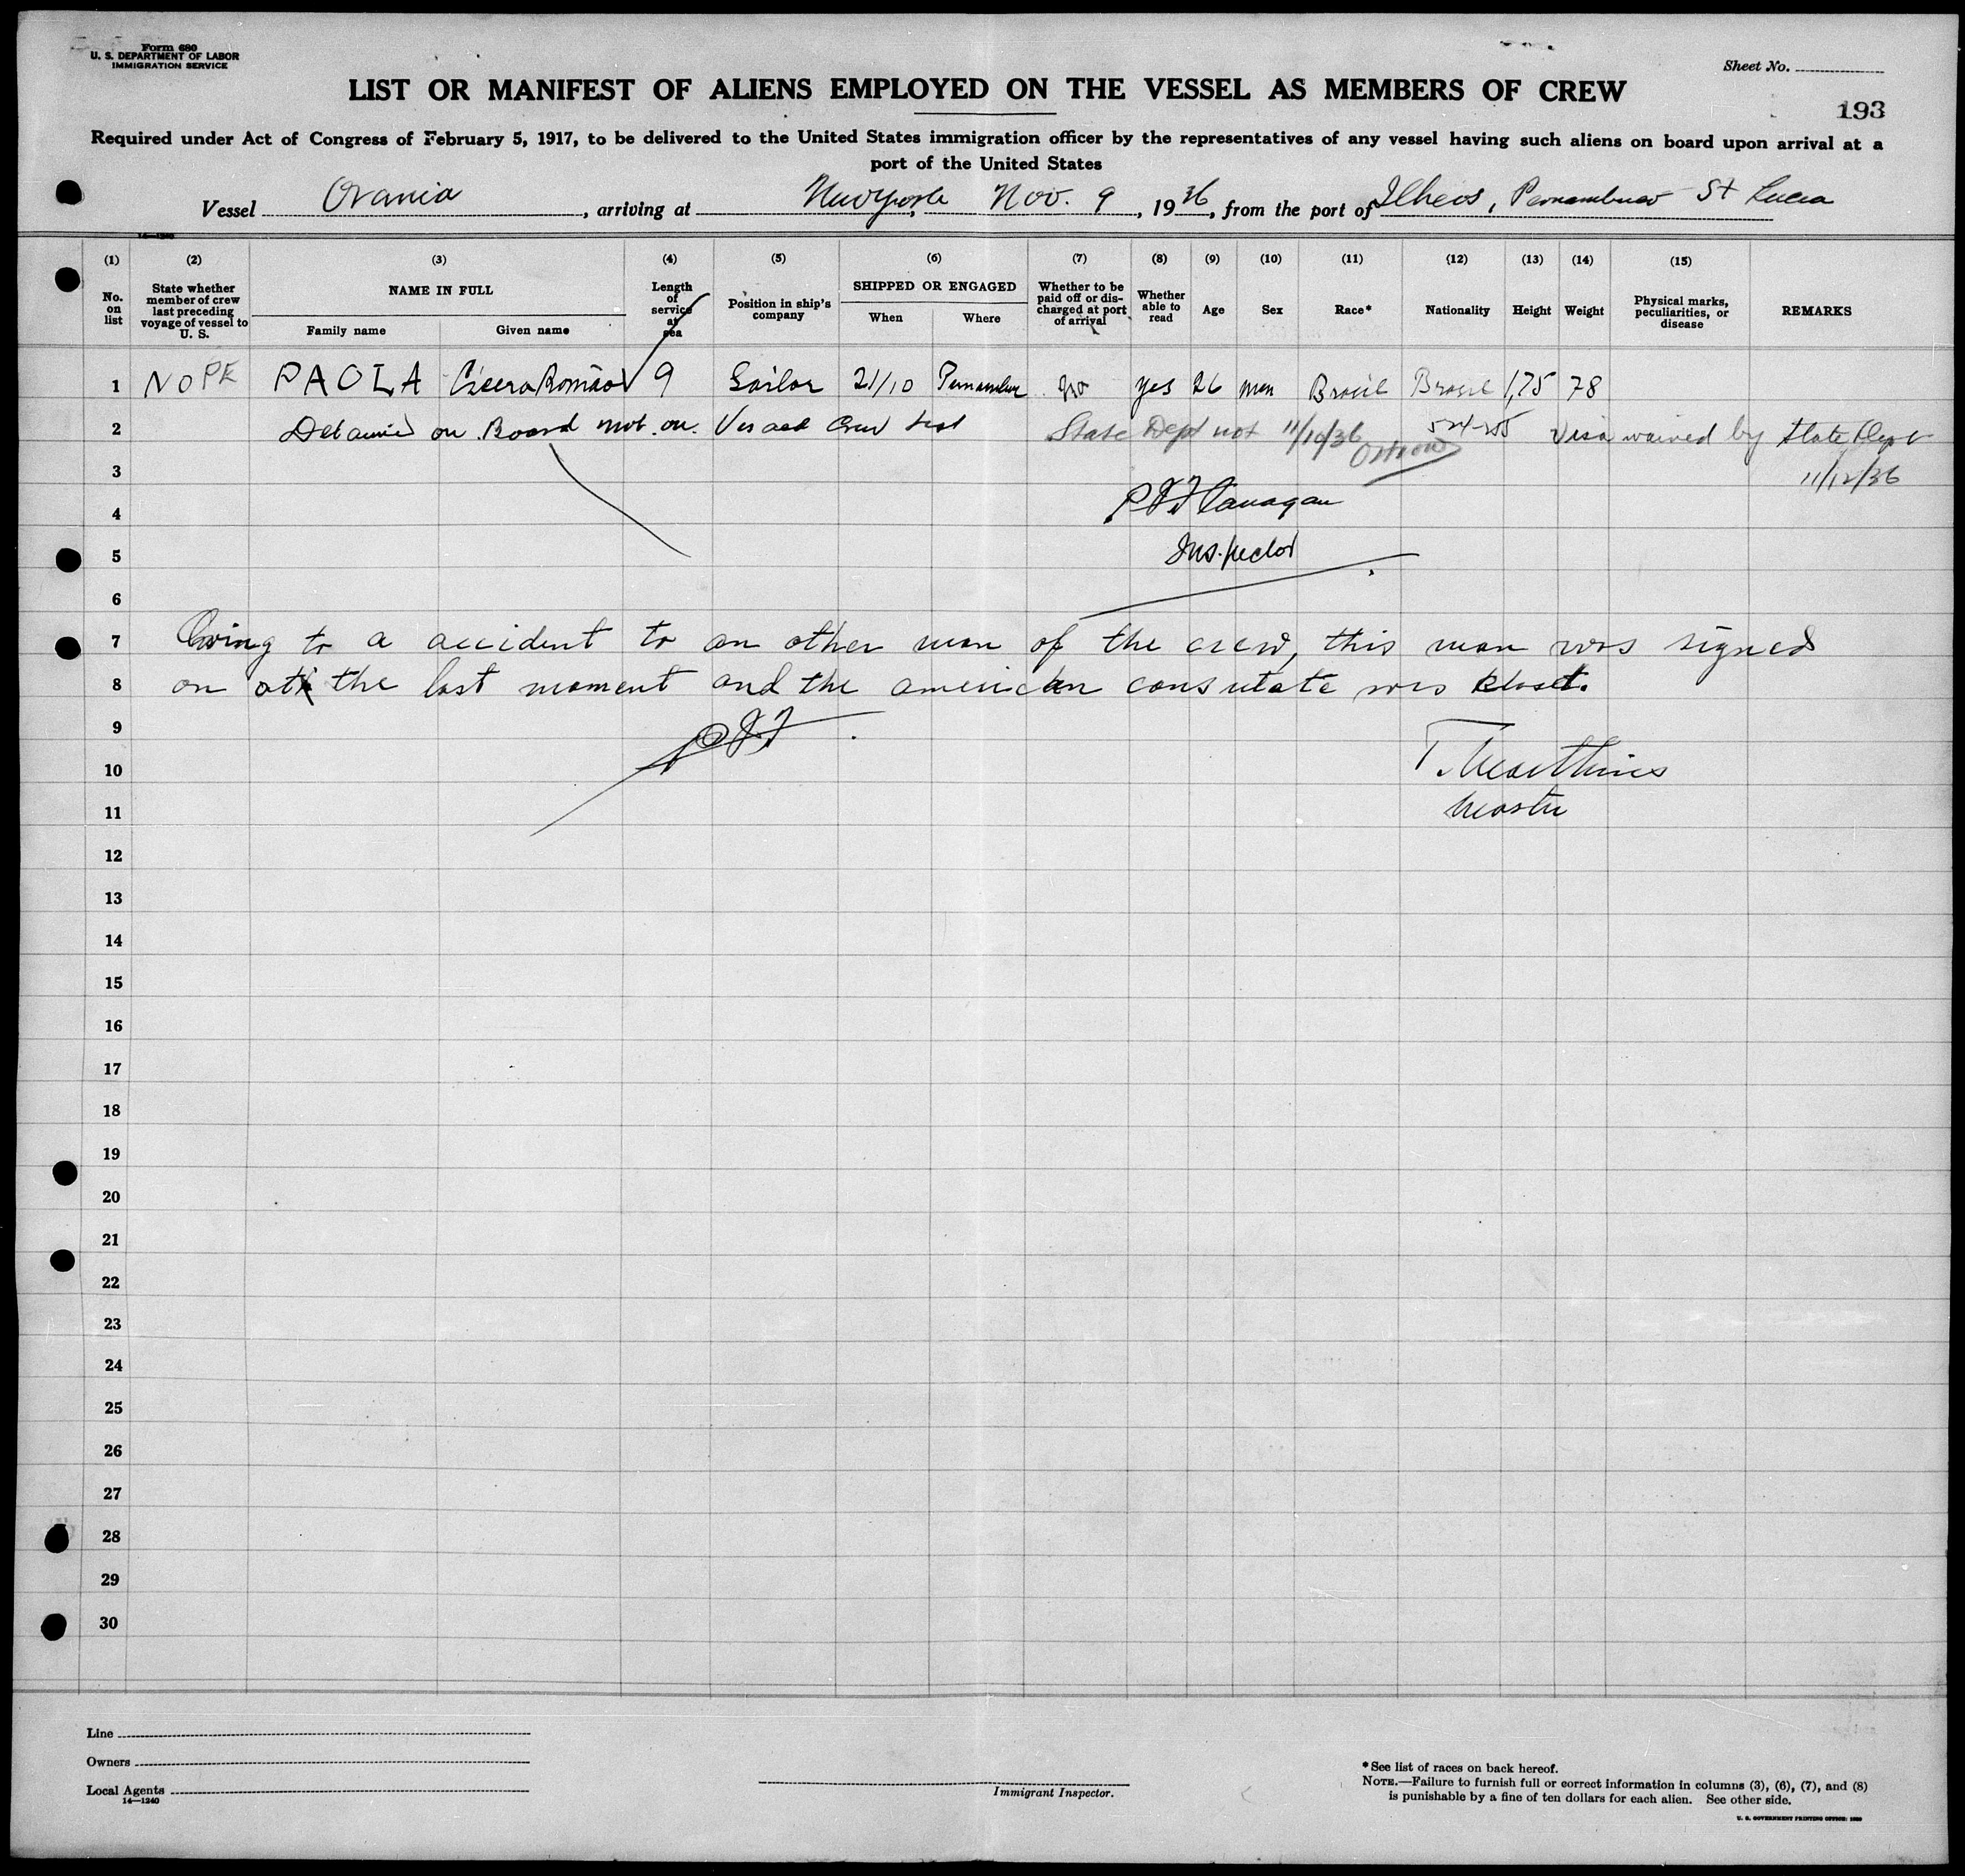 Form 680
U. S. DEPARTMENT OF LABOR
IMMIGRATION SERVICE
Sheet No.
LIST OR MANIFEST OF ALIENS EMPLOYED ON THE VESSEL AS MEMBERS OF CREW
193
Required under Act of Congress of February 5, 1917, to be delivered to the United States immigration officer by the representatives of any vessel having such aliens on board upon arrival at a
port of the United States
Vessel Orania, arriving at New York, Nov. 9, 1936, from the port of Ilheos, Pernambuco St Lucia
14—1240
(1) (2) (3) (4) (5) (6) (7) (8) (9) (10) (11) (12) (13) (14) (15)
No. on list
State whether member of crew last preceding voyage of vessel to U. S.
NAME IN FULL
Family name
Given name
Length of service at sea
Position in ship's company
SHIPPED OR ENGAGED
When
Where
Whether to be paid off or discharged at port of arrival
Whether able to read
Age
Sex
Race*
Nationality
Height
Weight
Physical marks, peculiarities, or disease
REMARKS
1 NO PE PAOLA Cicero Romão 9 Sailor 21/10 Pernambuc no yes 26 man Brasil Brasil 1,75 78
2 Detained on Board not on Visaed Crew List State Dept not 11/10/36 Visa waived by State Dept
3 11/12/36
4 P J Flanagan
5 Inspector
6
7 Owing to a accident to an other man of the crew, this man was signed
8 on at the last moment and the american consulate was closed.
9 PJF
10
11 Master
12
13
14
15
16
17
18
19
20
21
22
23
24
25
26
27
28
29
30
Line
Owners
Local Agents
14—1240
Immigrant Inspector.
*See list of races on back hereof.
NOTE.—Failure to furnish full or correct information in columns (3), (6), (7), and (8)
is punishable by a fine of ten dollars for each alien. See other side.